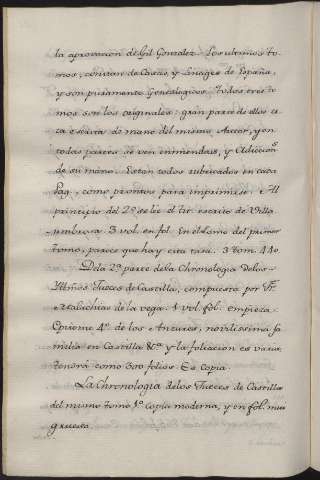 la aprovacion de Gil Gonzalez. Los ultimos to-
mos, constan de Casas, y Linages de España,
y son puramente Genealogicos. Todos tres to-
mos son los originales: gran parte de ellos es-
ta escrita de mano del mismo Auctor, y en
todas partes se ven enmendaꝭ, y Adicion.ˢ
de su mano. Estan todos rubricados en cada
Pag. como prontos para imprimirse. Al
principio del 2º se lee el tit. escrito de Villa-
umbrosa. 3 vol. en fol. En el Lomo del primer
tomo, parece que hay esta tasa. 3 tom. 440.
De la 2ª parte de la Chronologia de los
Ultimos Jueces de Castilla, compuesta por Fr.
Malachias de la Vega. 1 vol. fol. empieza.
Epitome 4º de los Anzures, novilissima fa-
milia en Castilla &ª y la foliacion es varia,
tendrá como 300 folios. Es copia.
La Chronologia de los Jueces de Castilla
del mismo tomo 1º copia moderna, y en fol. mui
gruesa.